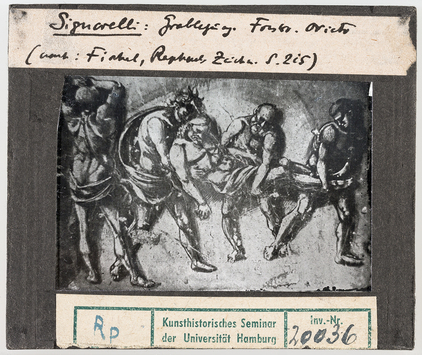 Signorelli: Grablegung. Orvieto
(nach: Fischel, Raphaels Zeichn. S. 215)
Rp
Kunsthistorisches Seminar
der Universität Hamburg
Inv.-Nr.
20036